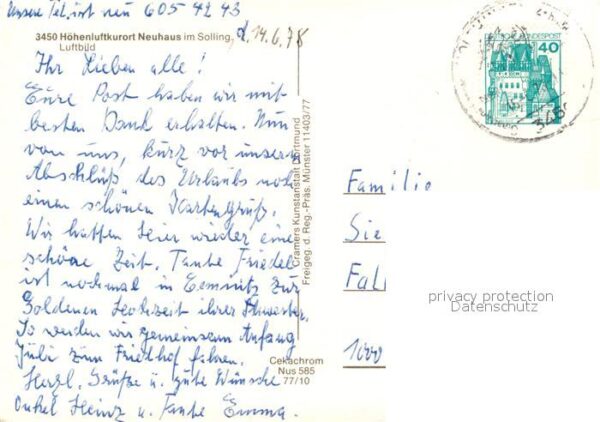 Unsere Tel. ist neu 605 42 43
3450 Höhenluftkurort Neuhaus im Solling,
Luftbild
d. 14.6.78
Ihr Lieben alle!
Eure Post haben wir mit
besten Dank erhalten. Nun
von uns, kurz vor unserm
Abschluß des Urlaubs noch
einen schönen Kartengruß.
Wir hatten hier wieder eine
schöne Zeit. Tante Friedel
ist nochmal in Chemnitz zur
Goldenen Hochzeit ihrer Schwester.
So werden wir gemeinsam Anfang
Juli zum Friedhof fahren.
Herzl. Grüße u. gute Wünsche
Onkel Heinz u. Tante Emma.
Cramers Kunstanstalt Dortmund
Freigeg. d. Reg.-Präs. Münster 11403/77
Cekachrom
Nus 585
77/10
DEUTSCHE BUNDESPOST
40
Familie
Sie
Fal
1000
privacy protection
Datenschutz